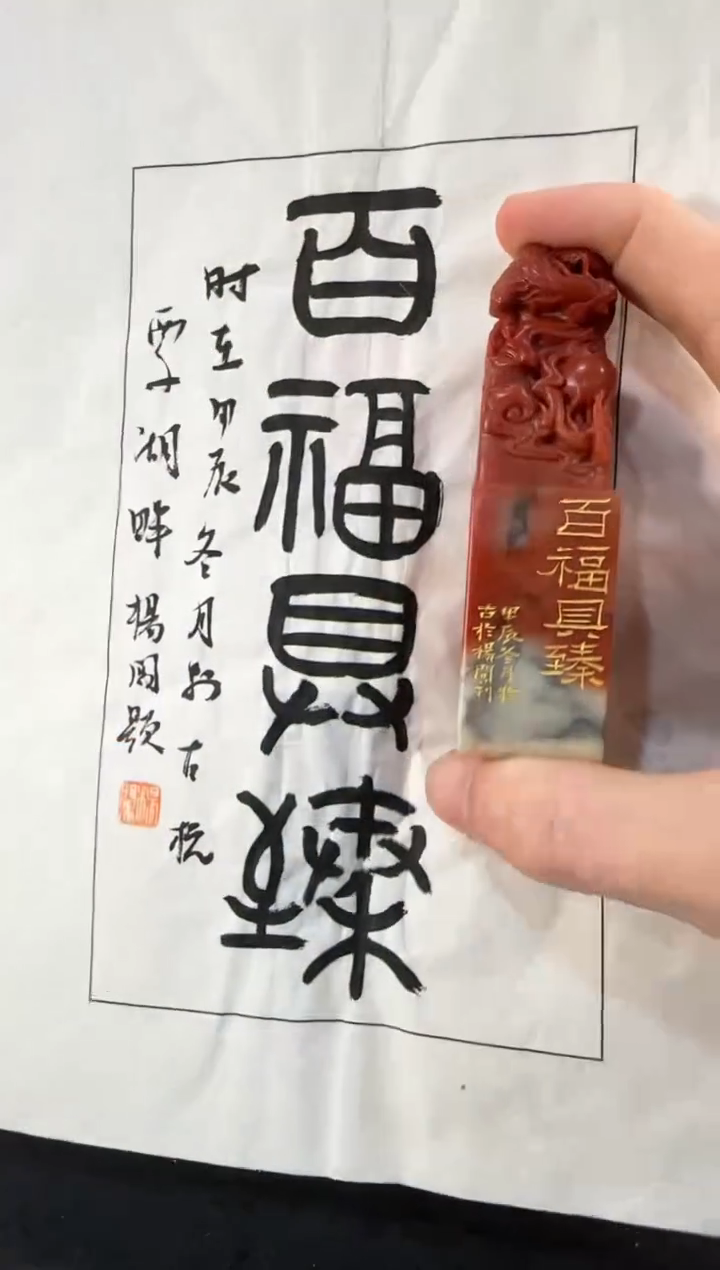 百福具臻
时在甲辰冬月於古杭
西子湖畔楊国题
百福具臻
甲辰冬月於
古杭楊刊